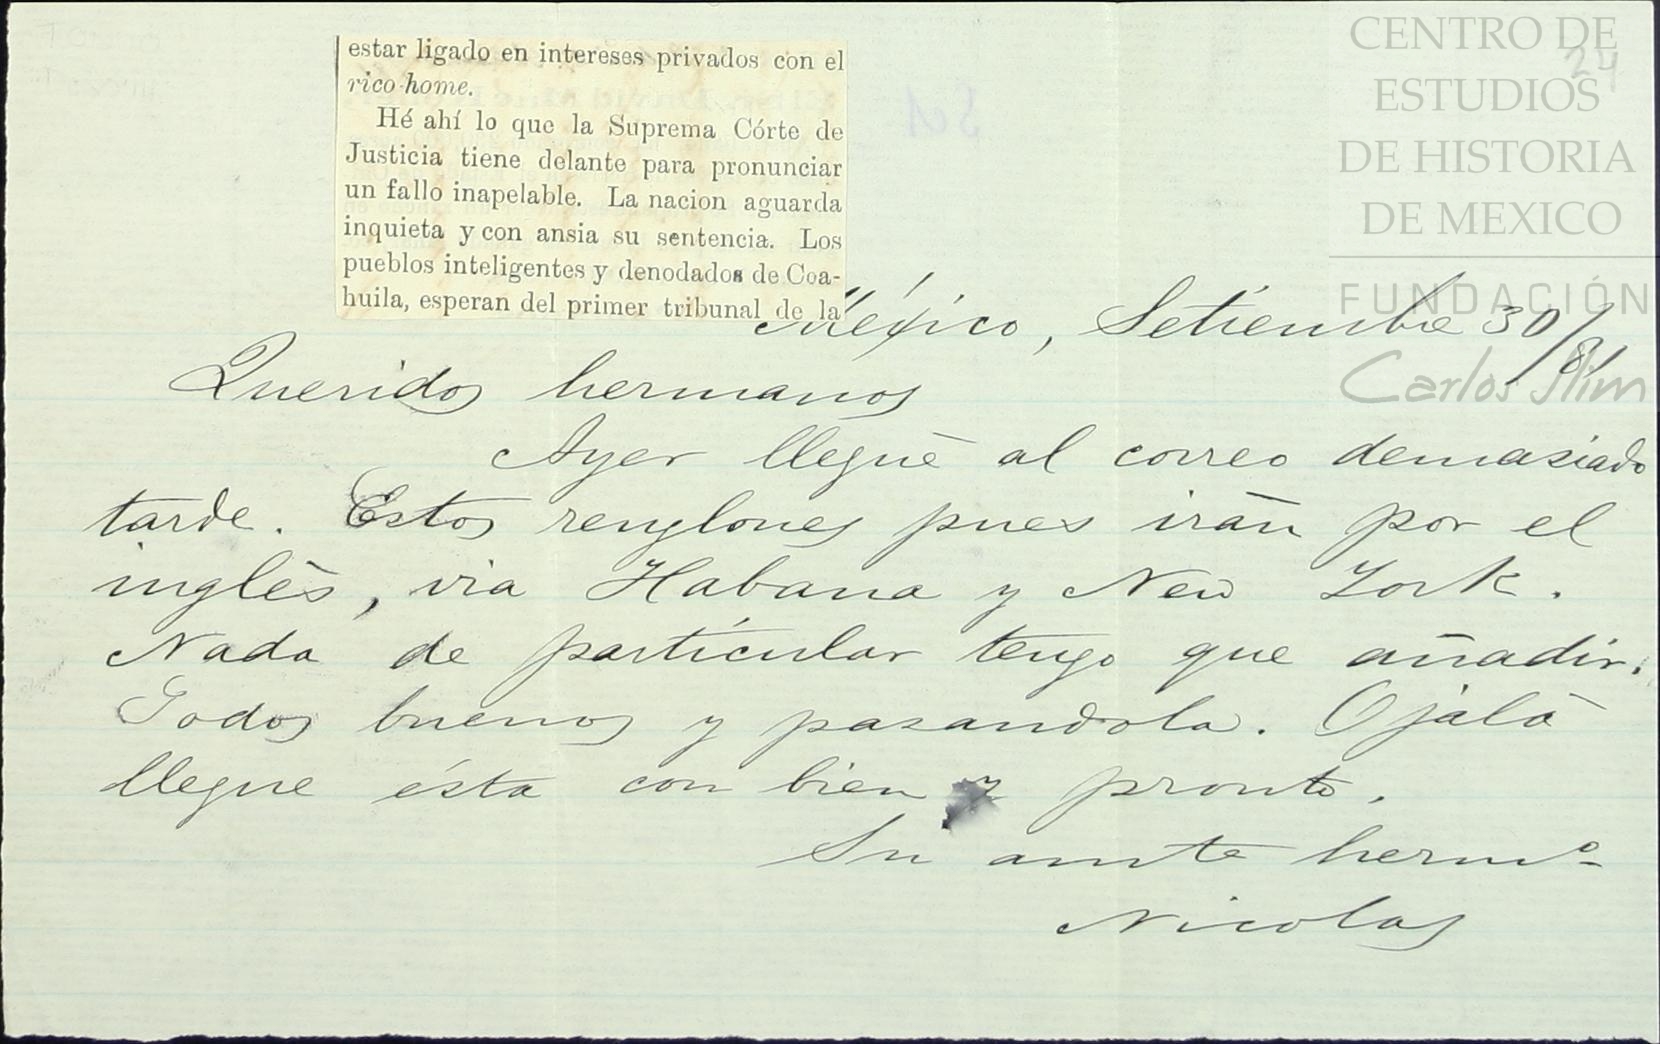 estar ligado en intereses privados con el
rico-home.
Hé ahí lo que la Suprema Córte de
Justicia tiene delante para pronunciar
un fallo inapelable. La nacion aguarda
inquieta y con ansia su sentencia. Los
pueblos inteligentes y denodados de Coa-
huila, esperan del primer tribunal de la
CENTRO DE
ESTUDIOS
DE HISTORIA
DE MEXICO
FUNDACIÓN
Carlos Slim
24
México, Setiembre 30/81
Queridos hermanos
Ayer llegué al correo demasiado
tarde. Estos renglones pues irán por el
inglés, via Habana y New York.
Nada de particular tengo que añadir.
Todos buenos y pasandola. Ojalá
llegue ésta con bien y pronto.
Su amte hermº
Nicolas